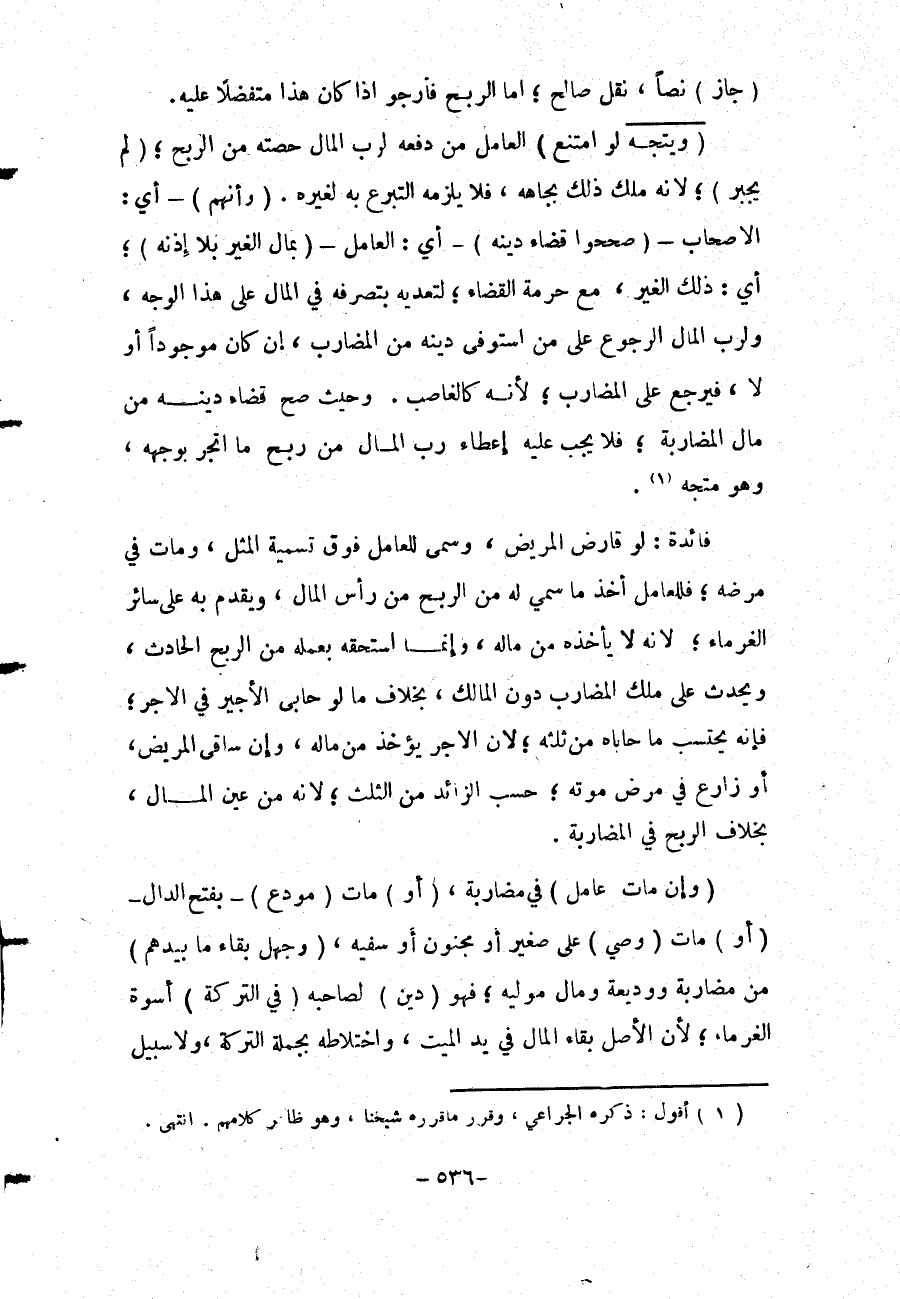 ( جاز ) نصاً ، نقل صالح ؛ اما الربح فأرجو اذا كان هذا متفضلًا عليه.
( ويتجه لو امتنع ) العامل من دفعه لرب المال حصته من الربح ؛ ( لم
يجبر ) ؛ لانه ملك ذلك بجاهه ، فلا يلزمه التبرع به لغيره . ( وأنهم ) – أي :
الاصحاب – ( صححوا قضاء دينه ) – أي : العامل – ( بمال الغير بلا إذنه ) ؛
أي : ذلك الغير ، مع حرمة القضاء ؛ لتعديه بتصرفه في المال على هذا الوجه ،
ولرب المال الرجوع على من استوفى دينه من المضارب ، إن كان موجوداً أو
لا ، فيرجع على المضارب ؛ لأنه كالغاصب . وحيث صح قضاء دينه من
مال المضاربة ؛ فلا يجب عليه إعطاء رب المال من ربح ما اتجر بوجهه ،
وهو متجه (١) .
فائدة : لو قارض المريض ، وسمى للعامل فوق تسمية المثل ، ومات في
مرضه ؛ فللعامل أخذ ما سمي له من الربح من رأس المال ، ويقدم به على سائر
الغرماء ؛ لانه لا يأخذه من ماله ، وإنما استحقه بعمله من الربح الحادث ،
ويحدث على ملك المضارب دون المالك ، بخلاف ما لو حابى الأجير في الاجر ؛
فإنه يحتسب ما حاباه من ثلثه ؛ لان الاجر يؤخذ من ماله ، وإن ساقى المريض ،
أو زارع في مرض موته ؛ حسب الزائد من الثلث ؛ لانه من عين المال ،
بخلاف الربح في المضاربة .
( وإن مات عامل ) في مضاربة ، ( أو ) مات ( مودع ) – بفتح الدال –
( أو ) مات ( وصي ) على صغير أو مجنون أو سفيه ، ( وجهل بقاء ما بيدهم )
من مضاربة ووديعة ومال موليه ؛ فهو ( دين ) لصاحبه ( في التركة ) أسوة
الغرماء ؛ لأن الأصل بقاء المال في يد الميت ، واختلاطه بجملة التركة ، ولا سبيل
( ١ ) أقول : ذكره الجراعي ، وقرر ماقرره شيخنا ، وهو ظاهر كلامهم . انتهى .
– ٥٣٦ –